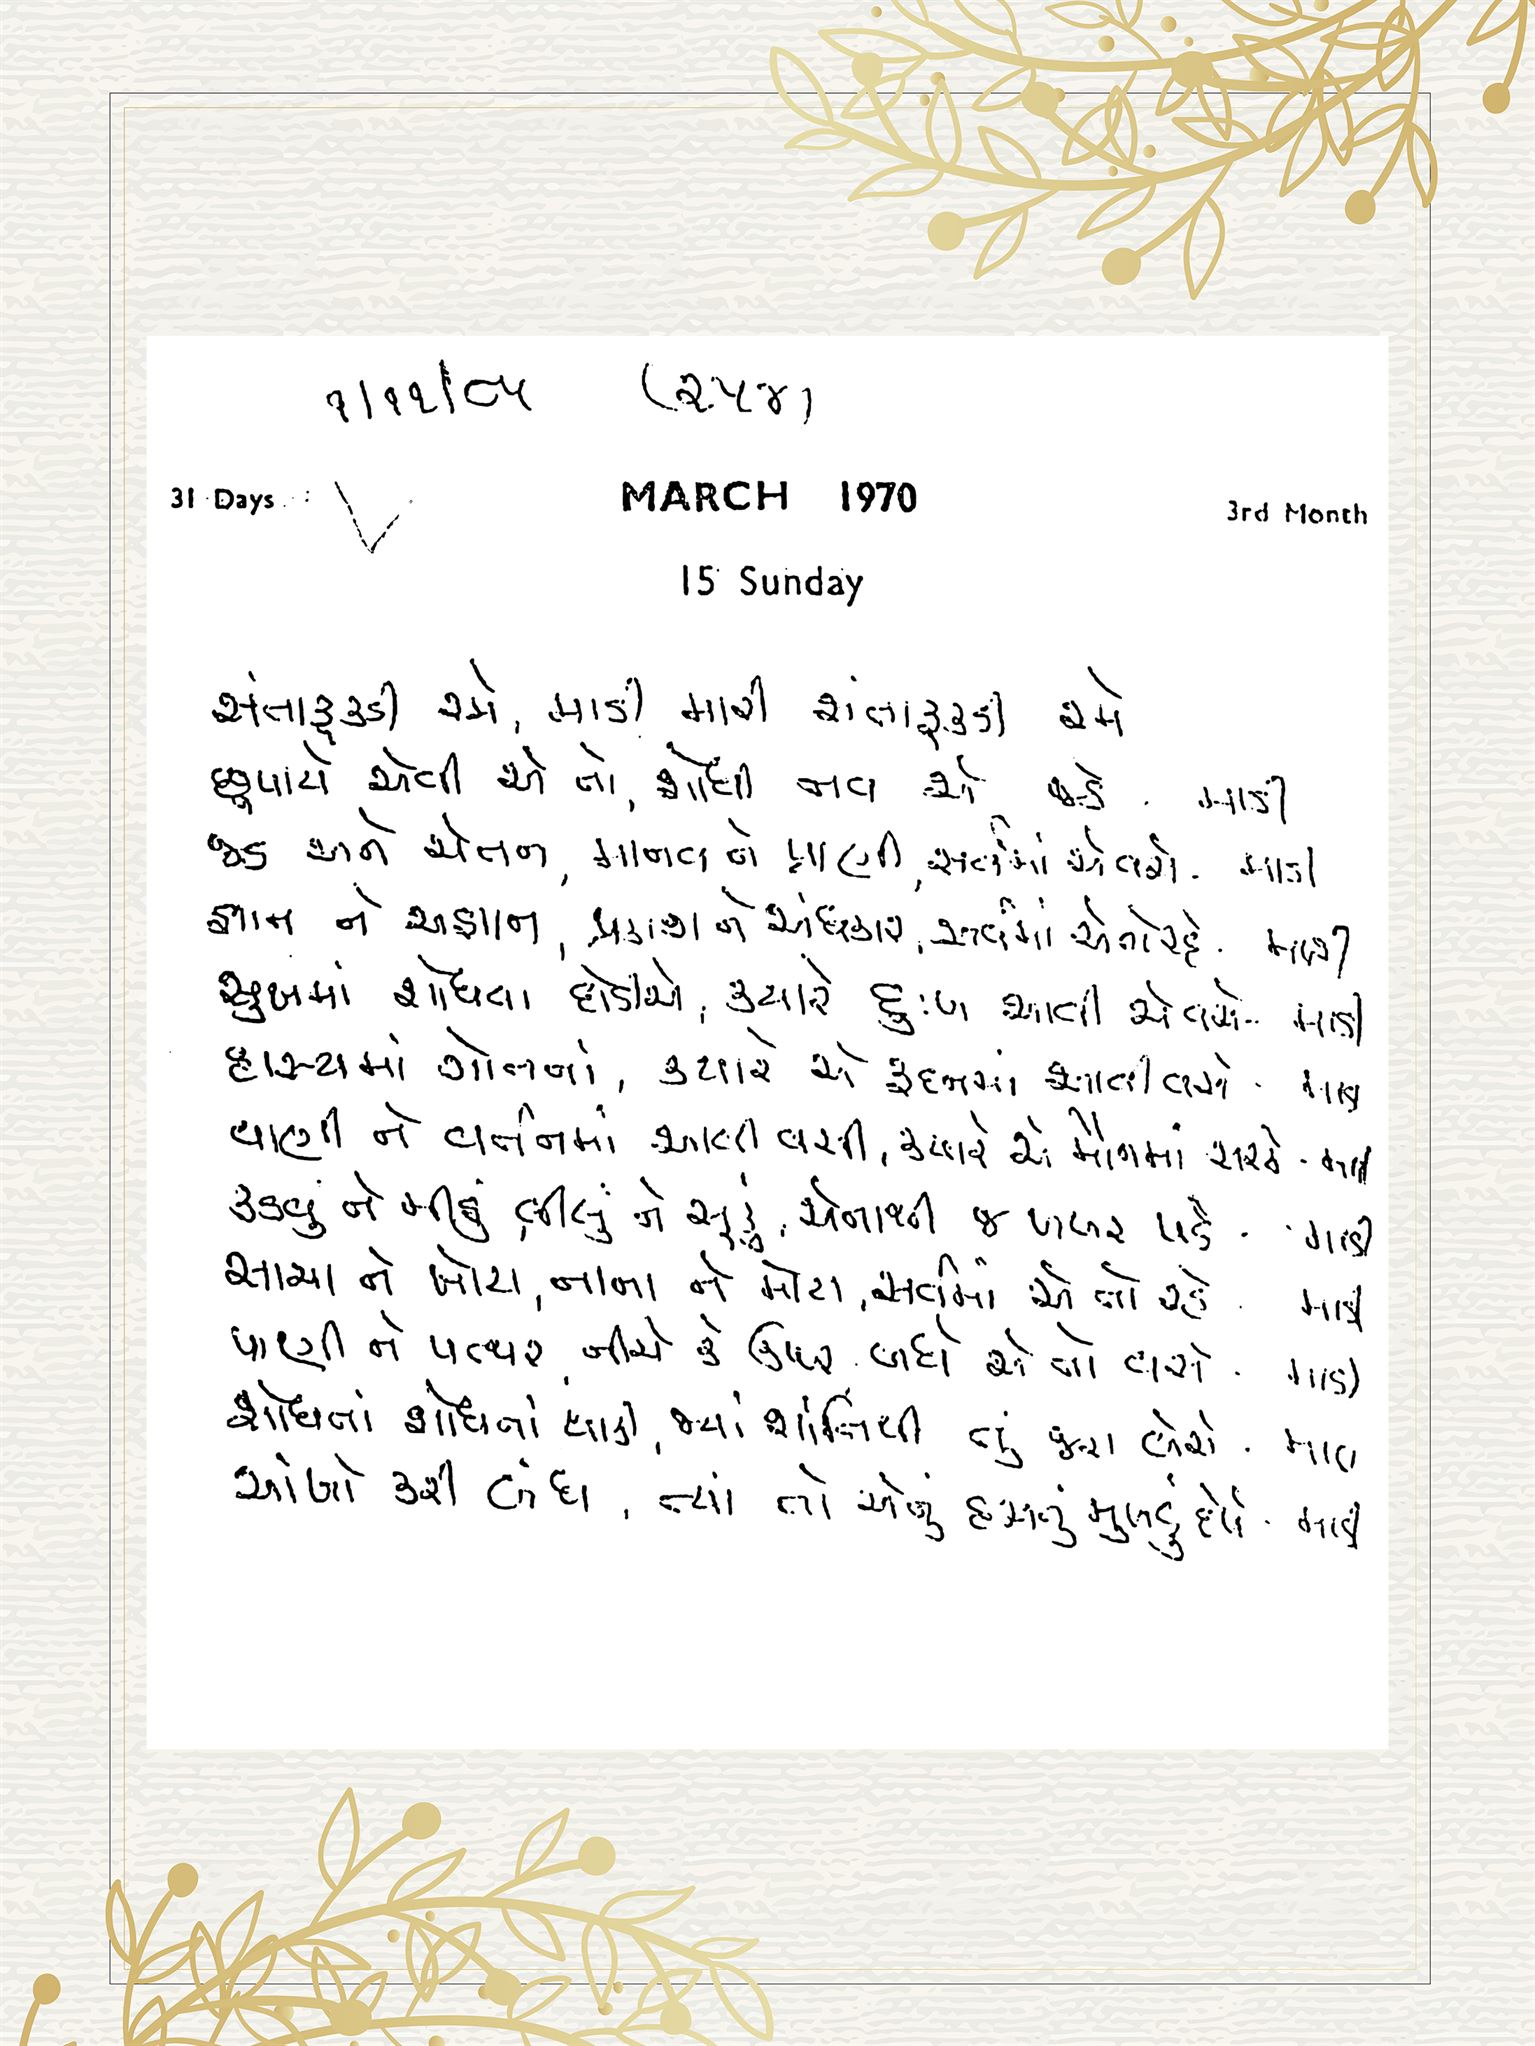 ૧/૧૨/૮૫ (૨૫૪)
31 Days
MARCH 1970
3rd Month
15 Sunday
સંતાકૂકડી રમે, માડી મારી સંતાકૂકડી રમે
છુપાયે એવી એ તો, શોધી નવ એ જડે. માડી
જડ અને ચેતન, માનવ ને પ્રાણી, સર્વમાં એ વસે. માડી
જ્ઞાન ને અજ્ઞાન, પ્રકાશ ને અંધકાર, સર્વમાં એ તો રહે. માડી
સુખમાં શોધવા દોડીએ, ક્યારે દુઃખ આવી એ વસે. માડી
હાસ્યમાં ગોતતાં, ક્યારે એ રૂદનમાં આવી વસે. માડી
વાણી ને વર્તનમાં આવી વસી, ક્યારે એ મૌનમાં સરકે. માડી
કડવું ને મીઠું, લીલું ને સૂકું, એનાથી જ ખબર પડે. માડી
સાચા ને ખોટા, નાના ને મોટા, સર્વમાં એ તો રહે. માડી
પાણી ને પત્થર, નીચે કે ઉપર બધે એ તો વસે. માડી
શોધતાં શોધતાં થાકી, જ્યાં શાંતિથી તું જરા બેસે. માડી
આંખો કરી બંધ, ત્યાં તો એનું હસતું મુખડું દેખે. માડી